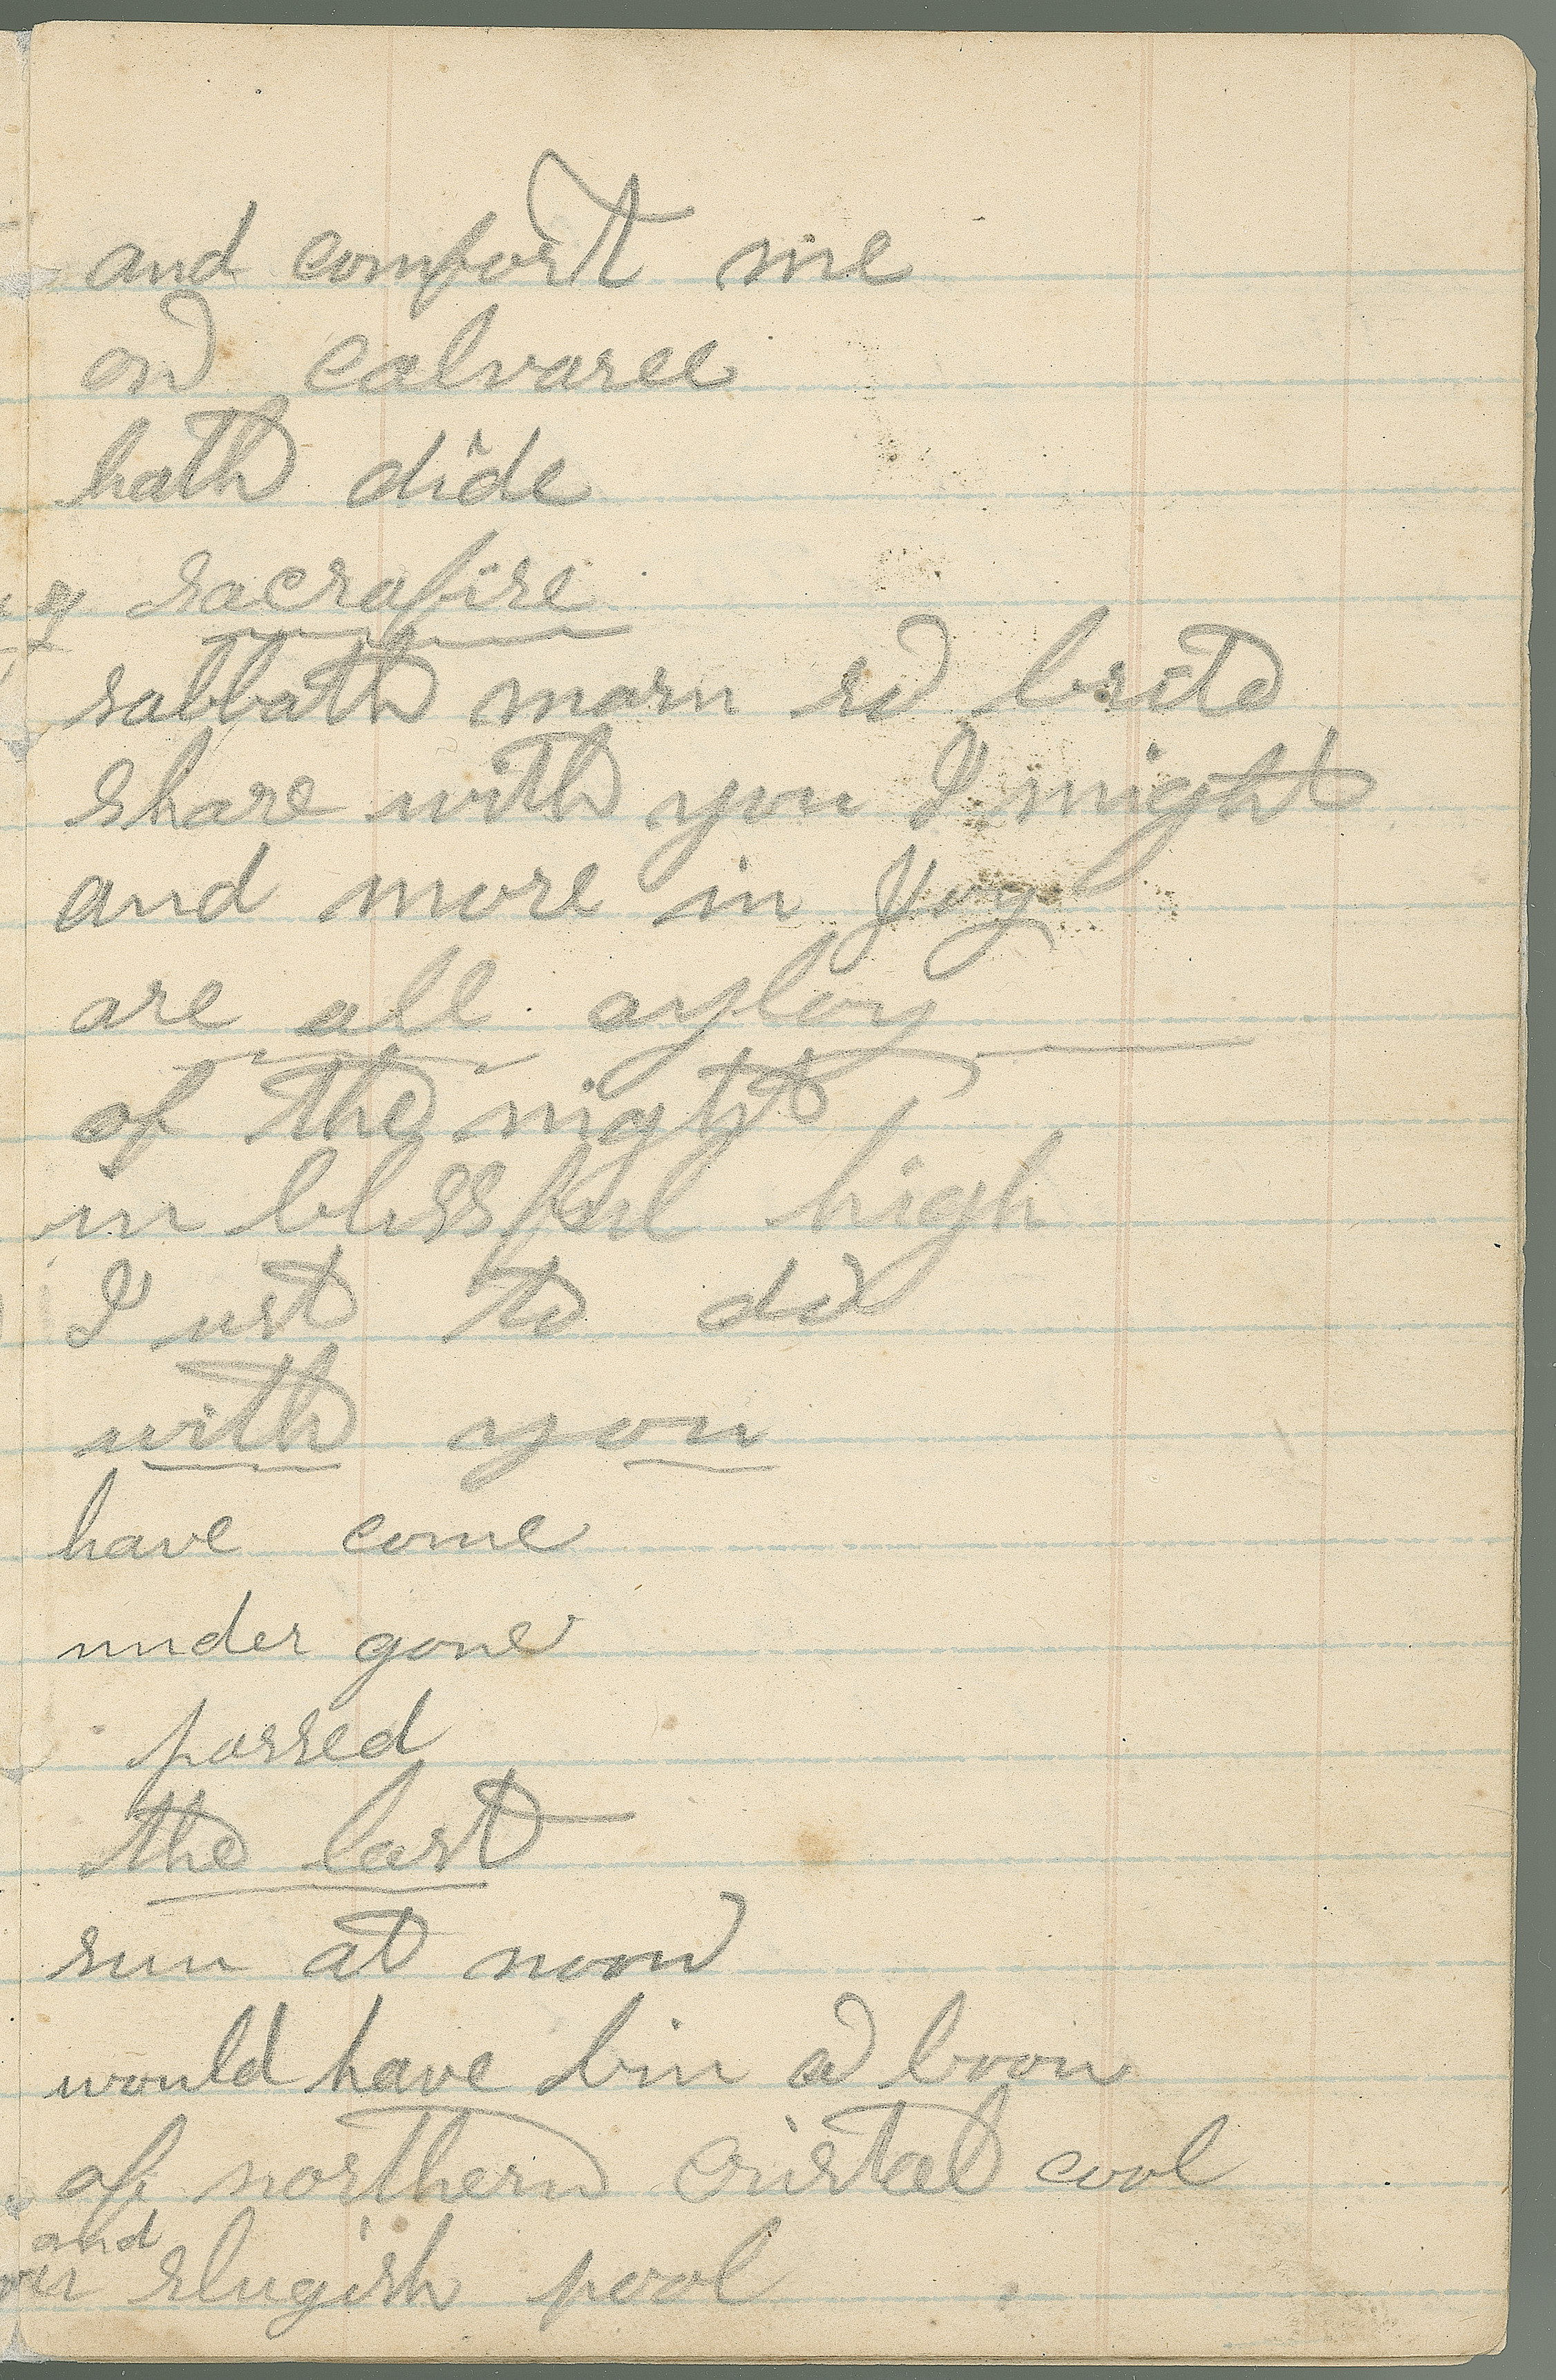 and comfort me
on calvaree
hath dide
sacrafise
sabbath morn so brite
share with you I might
and more in Joy
are all aploy
of the night
in blissful high
I ust to do
with you
have come
under gone
passed
the last
sun at noon
would have bin a boon
of northern cristal cool
and
slugish pool